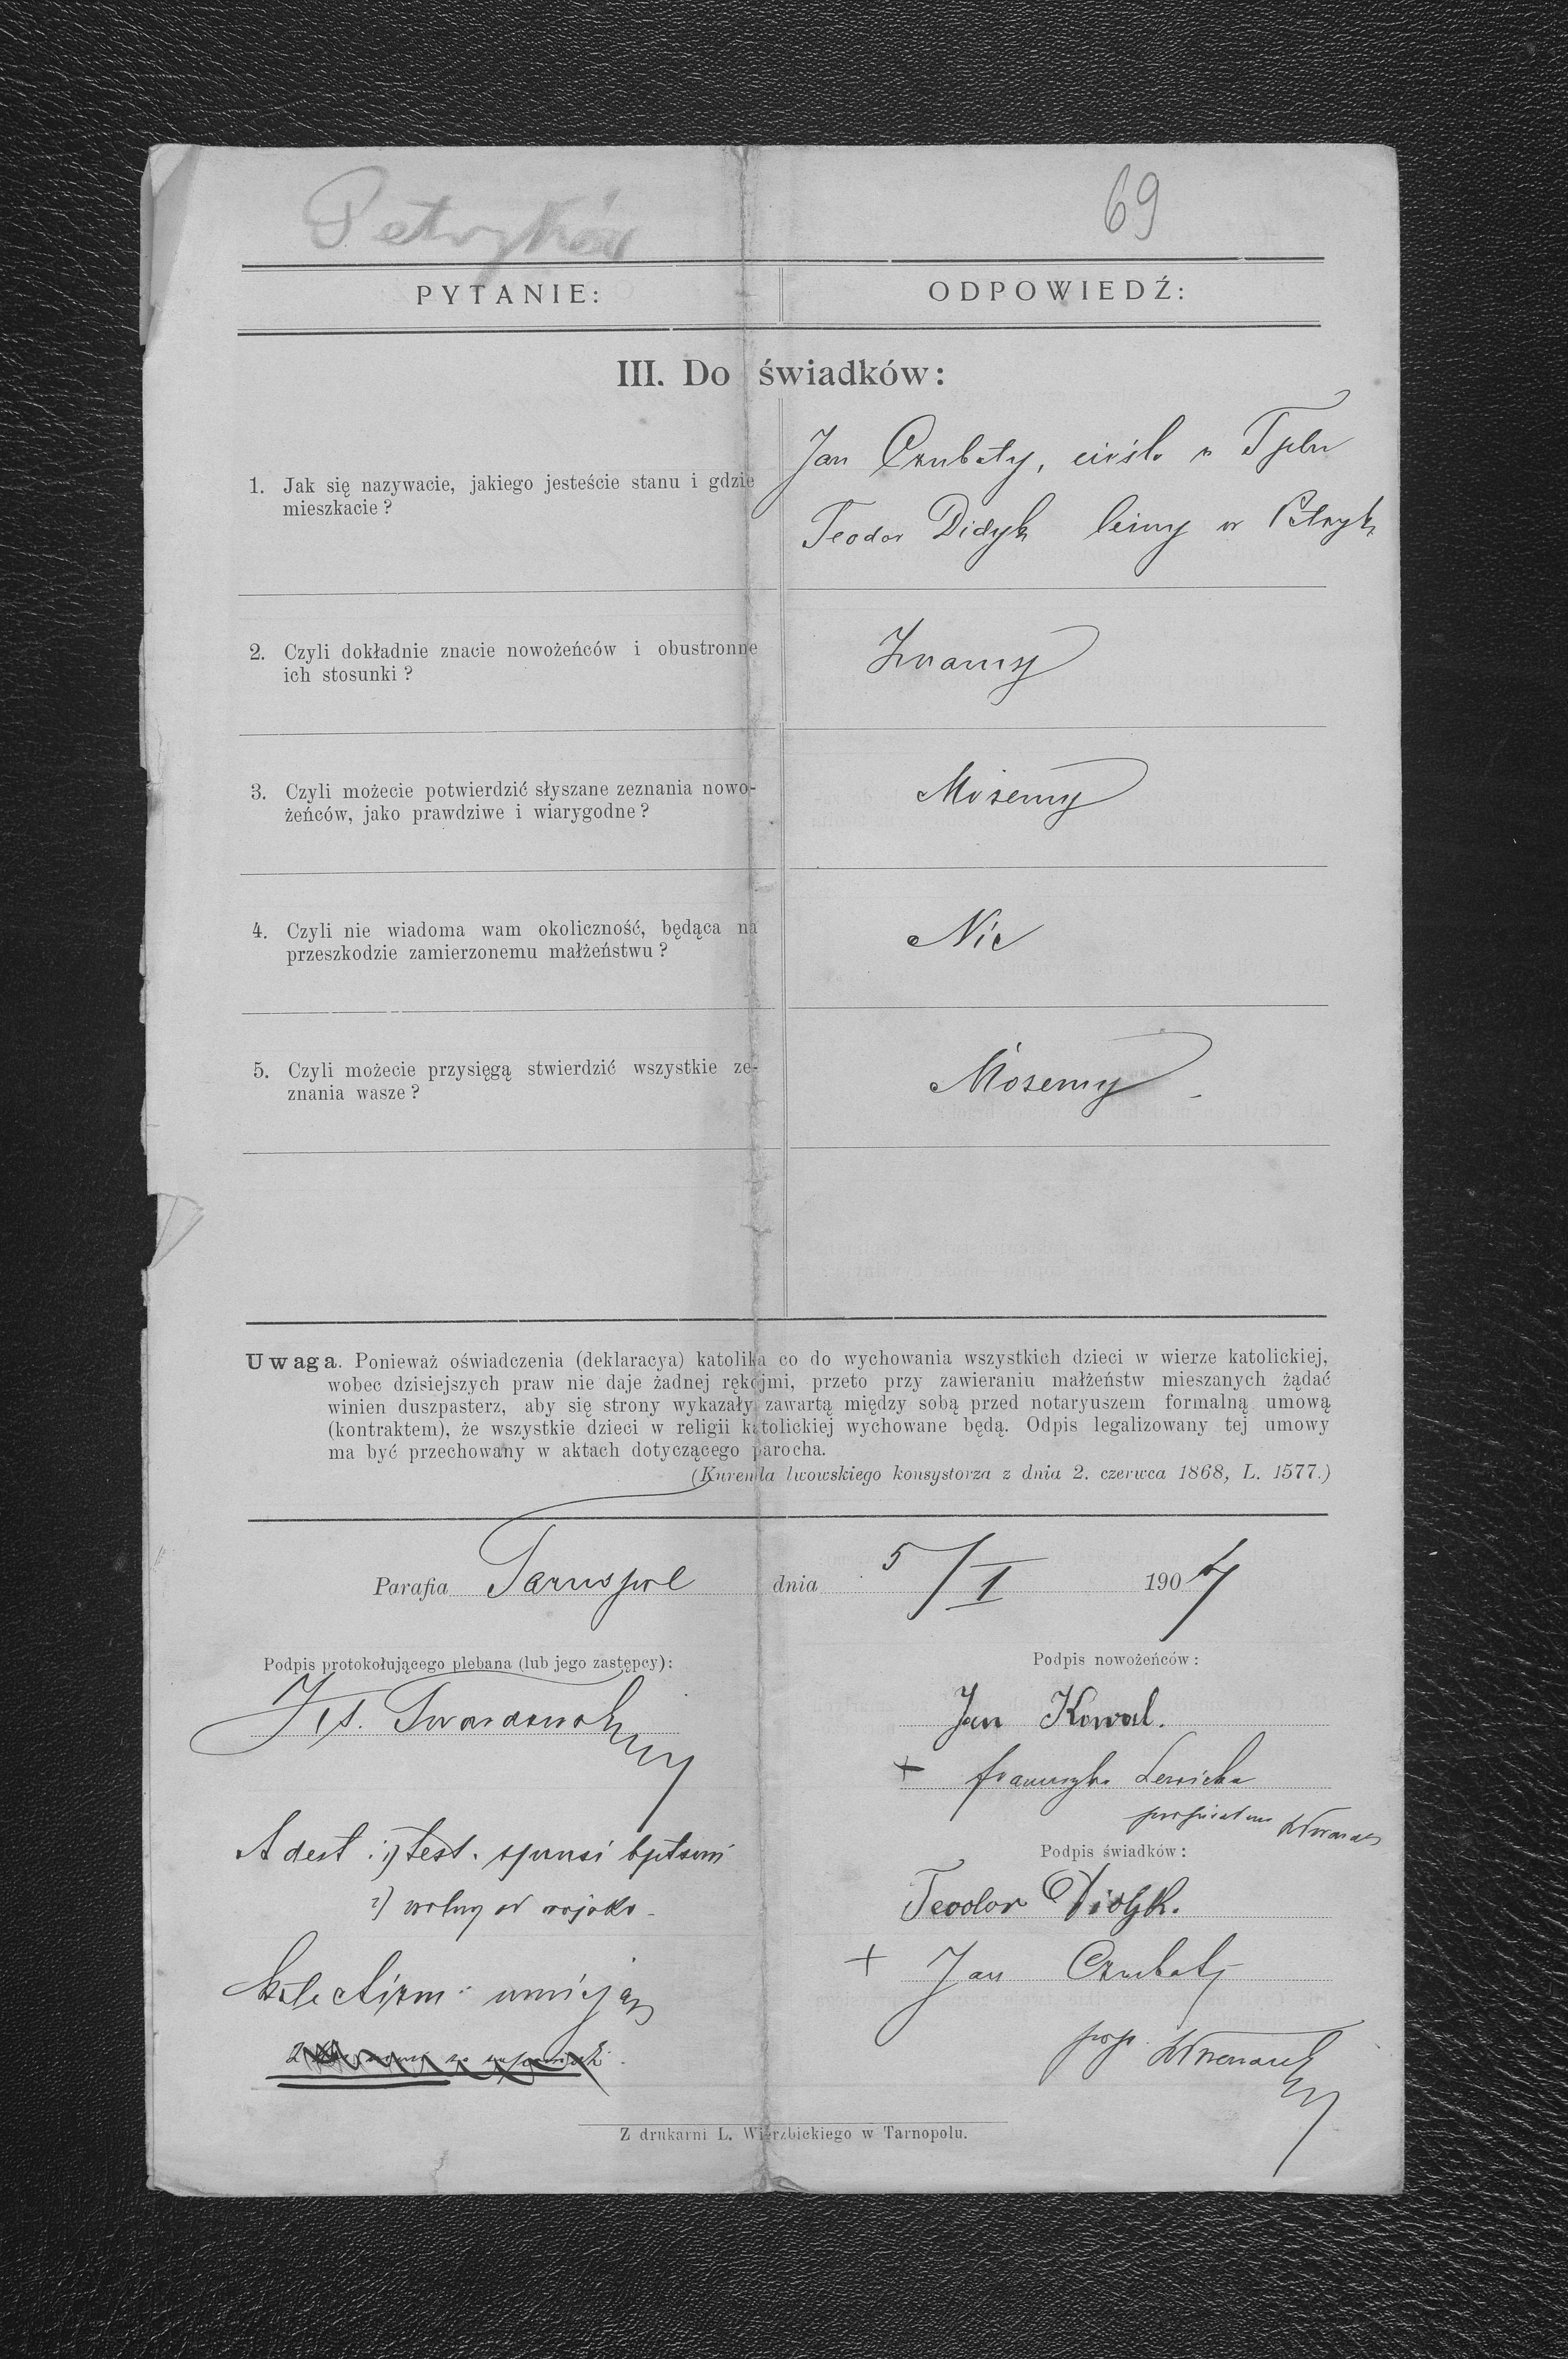 Petryków
69
PYTANIE:
ODPOWIEDŹ:
III. Do świadków:
1. Jak się nazywacie, jakiego jesteście stanu i gdzie
mieszkacie?
Jan Czubaty, cieśla w Tplu
Teodor Didyk leśny w Petryk
2. Czyli dokładnie znacie nowożeńców i obustronne
ich stosunki?
Znamy
3. Czyli możecie potwierdzić słyszane zeznania nowo-
żeńców, jako prawdziwe i wiarygodne?
Możemy
4. Czyli nie wiadoma wam okoliczność, będąca na
przeszkodzie zamierzonemu małżeństwu?
Nie
5. Czyli możecie przysięgą stwierdzić wszystkie ze-
znania wasze?
Możemy
Uwaga. Ponieważ oświadczenia (deklaracya) katolika co do wychowania wszystkich dzieci w wierze katolickiej,
wobec dzisiejszych praw nie daje żadnej rękojmi, przeto przy zawieraniu małżeństw mieszanych żądać
winien duszpasterz, aby się strony wykazały zawartą między sobą przed notaryuszem formalną umową
(kontraktem), że wszystkie dzieci w religii katolickiej wychowane będą. Odpis legalizowany tej umowy
ma być przechowany w aktach dotyczącego parocha.
(Kurenda lwowskiego konsystorza z dnia 2. czerwca 1868, L. 1577.)
Parafia Tarnopol dnia 5/I 1907
Podpis protokołującego plebana (lub jego zastępcy):
Podpis nowożeńców:
Jan Kowal.
+ Franciszka Lewicka
Adest: 1) test. sponsi bptsmi
Podpis świadków:
2) wolny od wojska
Teodor Didyk.
+ Jan Czubaty
umieją
Z drukarni L. Wierzbickiego w Tarnopolu.